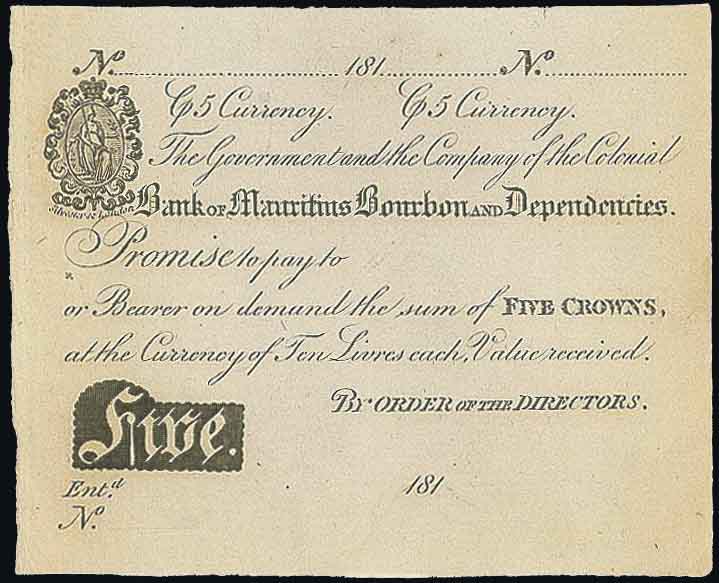 No. 181 No.
₲5 Currency. ₲5 Currency.
The Government and the Company of the Colonial
Bank of Mauritius Bourbon and Dependencies.
Promise to pay to
or Bearer on demand the sum of FIVE CROWNS,
at the Currency of Ten Livres each, Value received.
By ORDER OF THE DIRECTORS.
Five.
Ent.d 181
No.